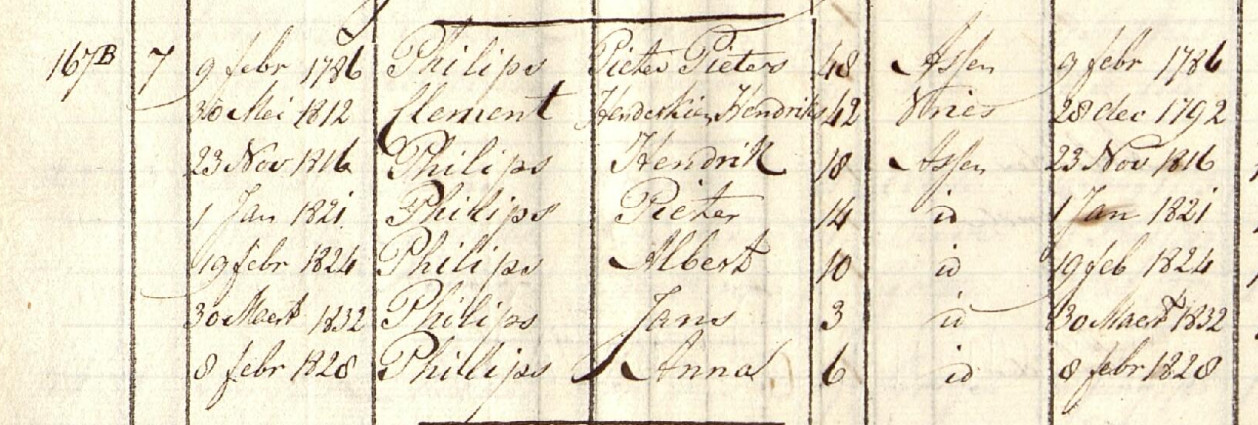 167B 7 9 febr 1786 Philips Pieter Pieters 48 Assen 9 febr 1786
30 Mei 1812 Clement Henderkien Hendriks 42 Vries 28 dec 1792
23 Nov 1816 Philips Hendrik 18 Assen 23 Nov 1816
1 Jan 1821 Philips Pieter 14 id 1 Jan 1821
19 febr 1824 Philips Albert 10 id 19 feb 1824
30 Maert 1832 Philips Jans 3 id 30 Maert 1832
8 febr 1828 Phillips Anna 6 id 8 febr 1828